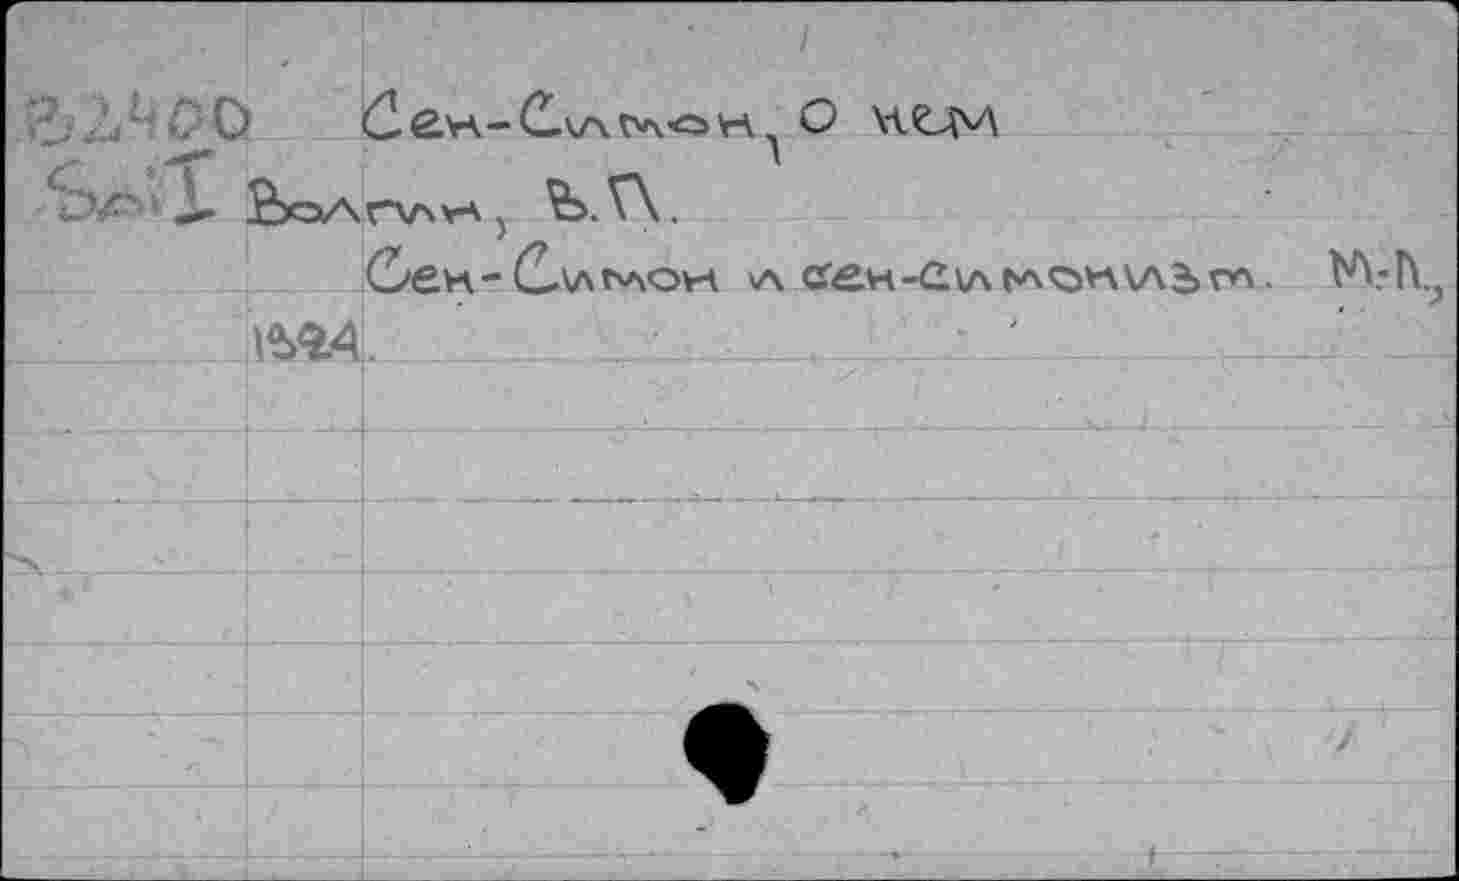 Сен-Симон, О нем
Волгин, В.П.
Сен-Симон и сен-симонизм. М.-Л.,
1924.